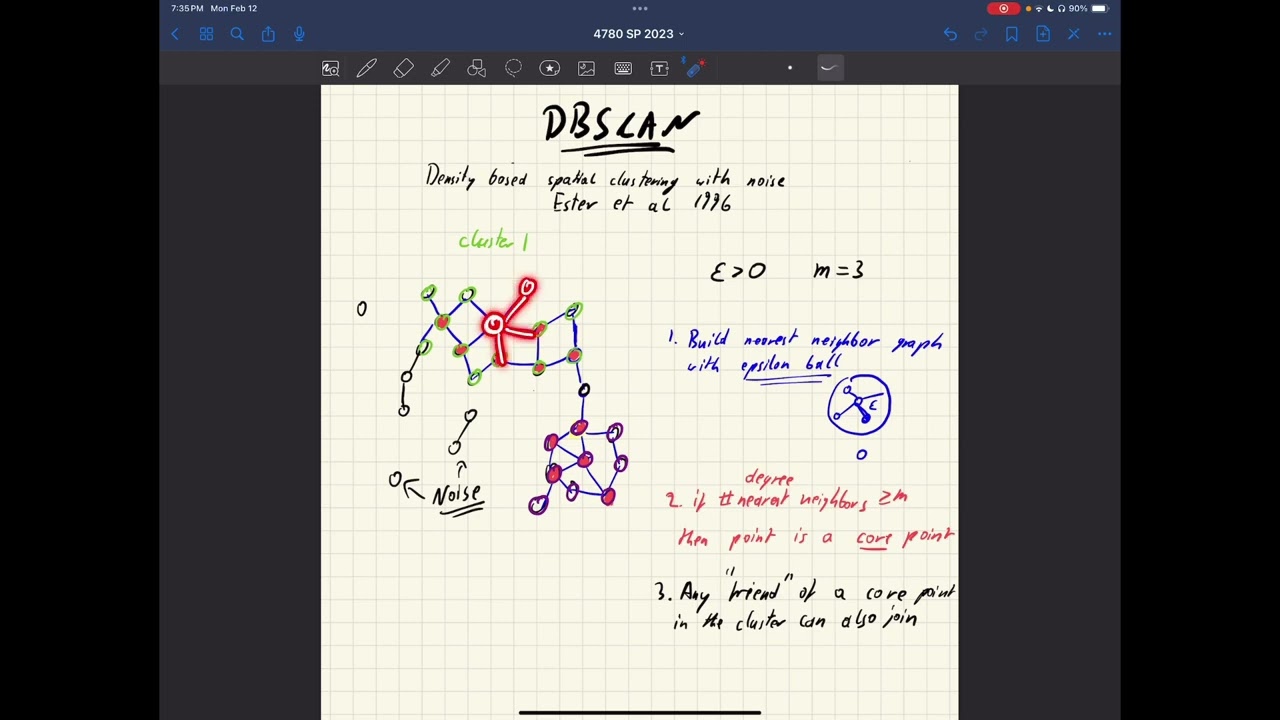 7:35 PM Mon Feb 12
90%
4780 SP 2023
DBSCAN
Density based spatial clustering with noise
Ester et al 1996
cluster 1
ε>0 m=3
1. Build nearest neighbor graph
with epsilon ball
ε
Noise
degree
2. if # nearest neighbors ≥m
then point is a core point
3. Any "friend" of a core point
in the cluster can also join